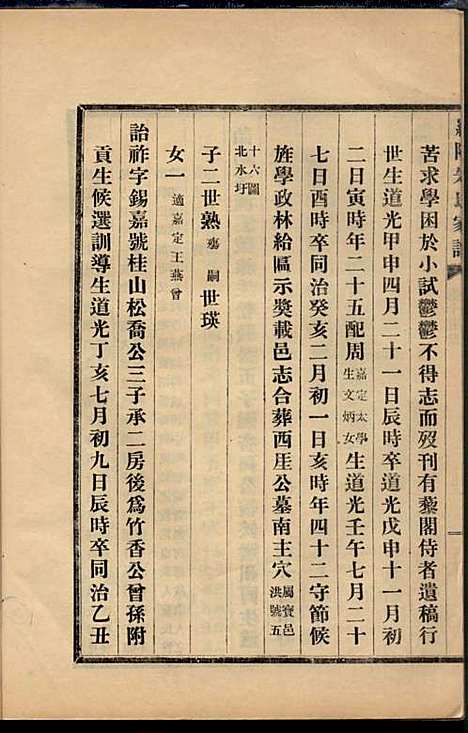 朱氏家譜
苦求學困於小試鬱鬱不得志而歿刊有藜閣侍者遺稿行
世生道光甲申四月二十一日辰時卒道光戊申十一月初
二日寅時年二十五配周嘉定太學生文炳女生道光壬午七月二十
七日酉時卒同治癸亥二月初一日亥時年四十二守節候
旌學政林給區示獎載邑志合葬西厓公墓南主穴屬寶邑洪號五
十六圖北水圩
子二世熟殤嗣世瑛
女一適嘉定王燕曾
詒祚字錫嘉號桂山松喬公三子承二房後為竹香公曾孫附
貢生候選訓導生道光丁亥七月初九日辰時卒同治乙丑